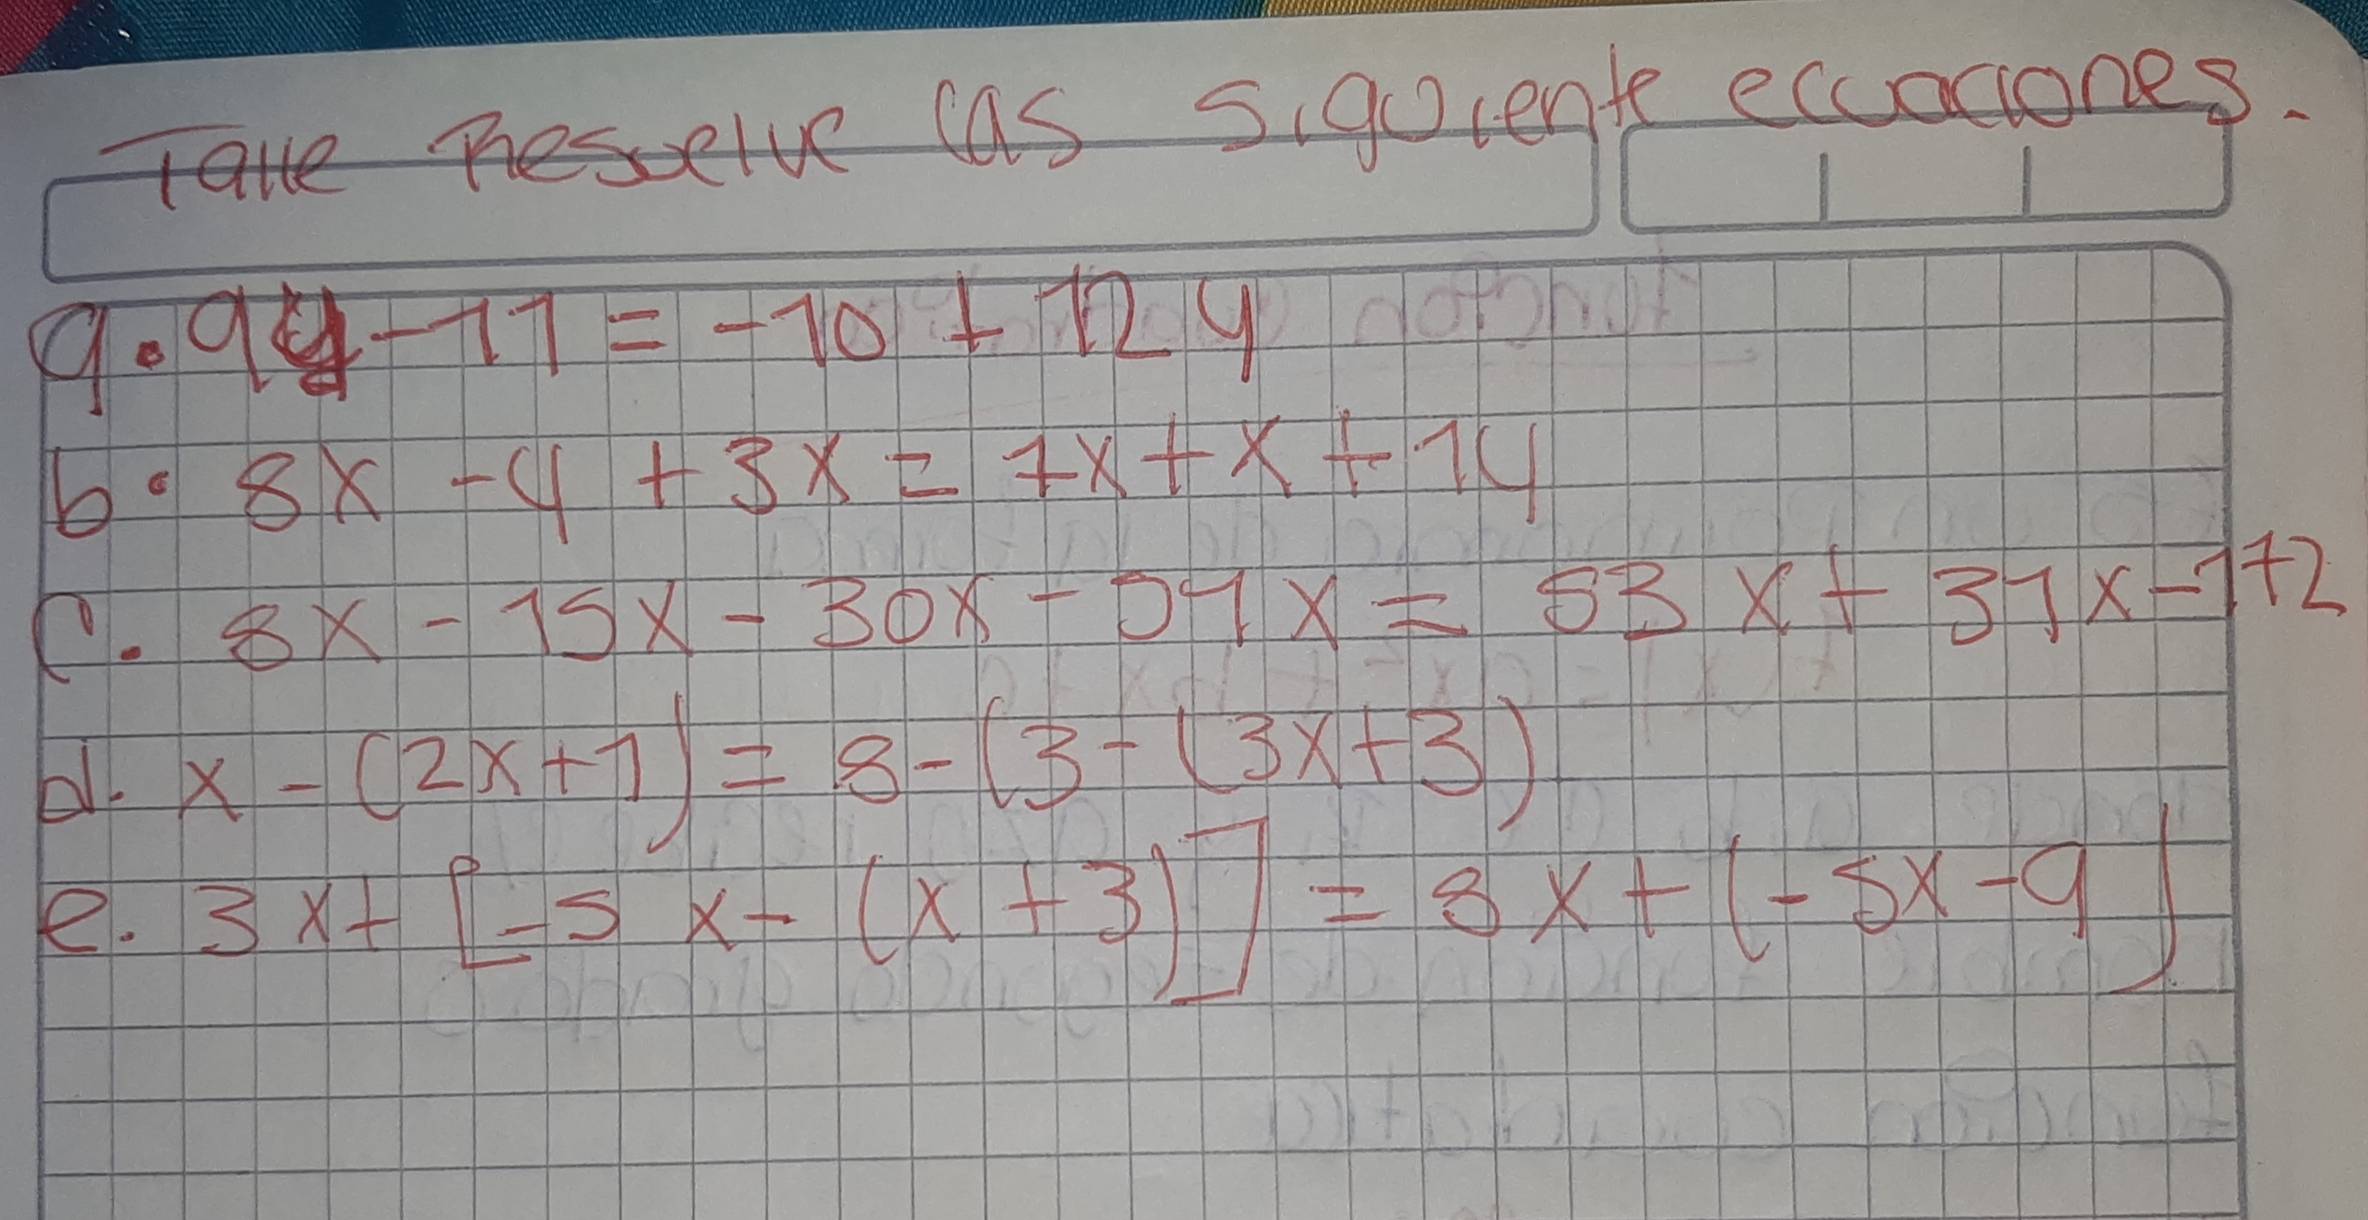 Talle Resuelve las siguiente ecuaciones.
a. 9y - 11 = -10 + 12y
b. 8x - 4 + 3x = 7x + x + 14
c. 8x - 15x - 30x - 51x = 53x + 31x - 172
d. x - (2x+1) = 8 - (3 - (3x+3)
e. 3x + [-5x - (x + 3)] = 8x + (-5x - 9)